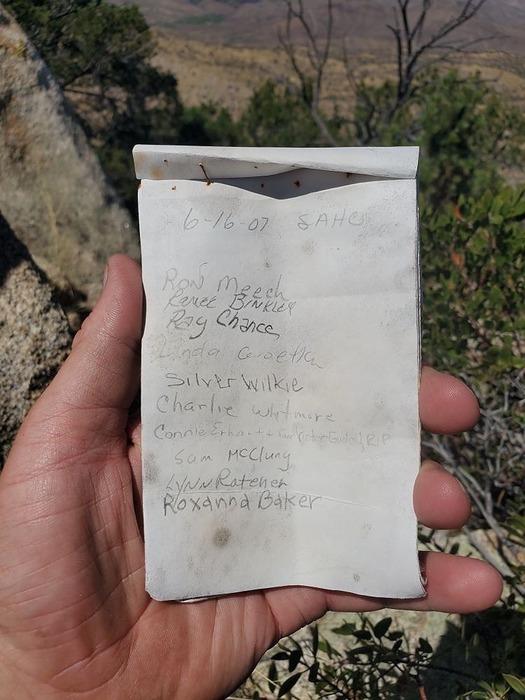 6-16-07 SAHC
Ron Meech
Renee Binkley
Ray Chance
Linda
Silver Wilkie
Charlie Whitmore
Connie RIP
Sam McClung
Lynn Ratener
Roxanna Baker